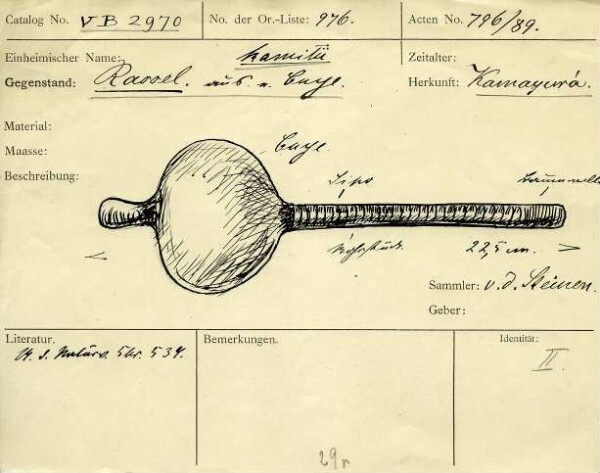 Catalog No. VB 2970 No. der Or.-Liste: 976. Acten No. 796/89.
Einheimischer Name: kamitü Zeitalter:
Gegenstand: Rassel. aus e. Cuye. Herkunft: Kamayurá.
Material:
Maasse: Cuye.
Beschreibung: Sipo Baumwolle
Rohrstück. 22,5 cm.
Sammler: v. d. Steinen.
Geber:
Literatur. Bemerkungen. Identität:
534. II
29